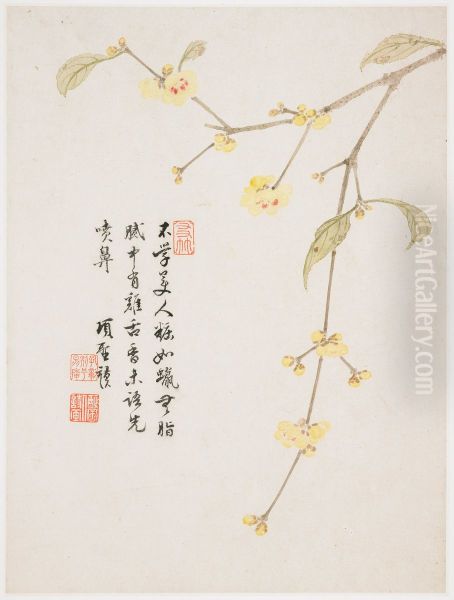 不学美人粧如蠟無脂
膩中有雞舌香未語先
噴鼻 項聖謨
NiceArtGallery.com